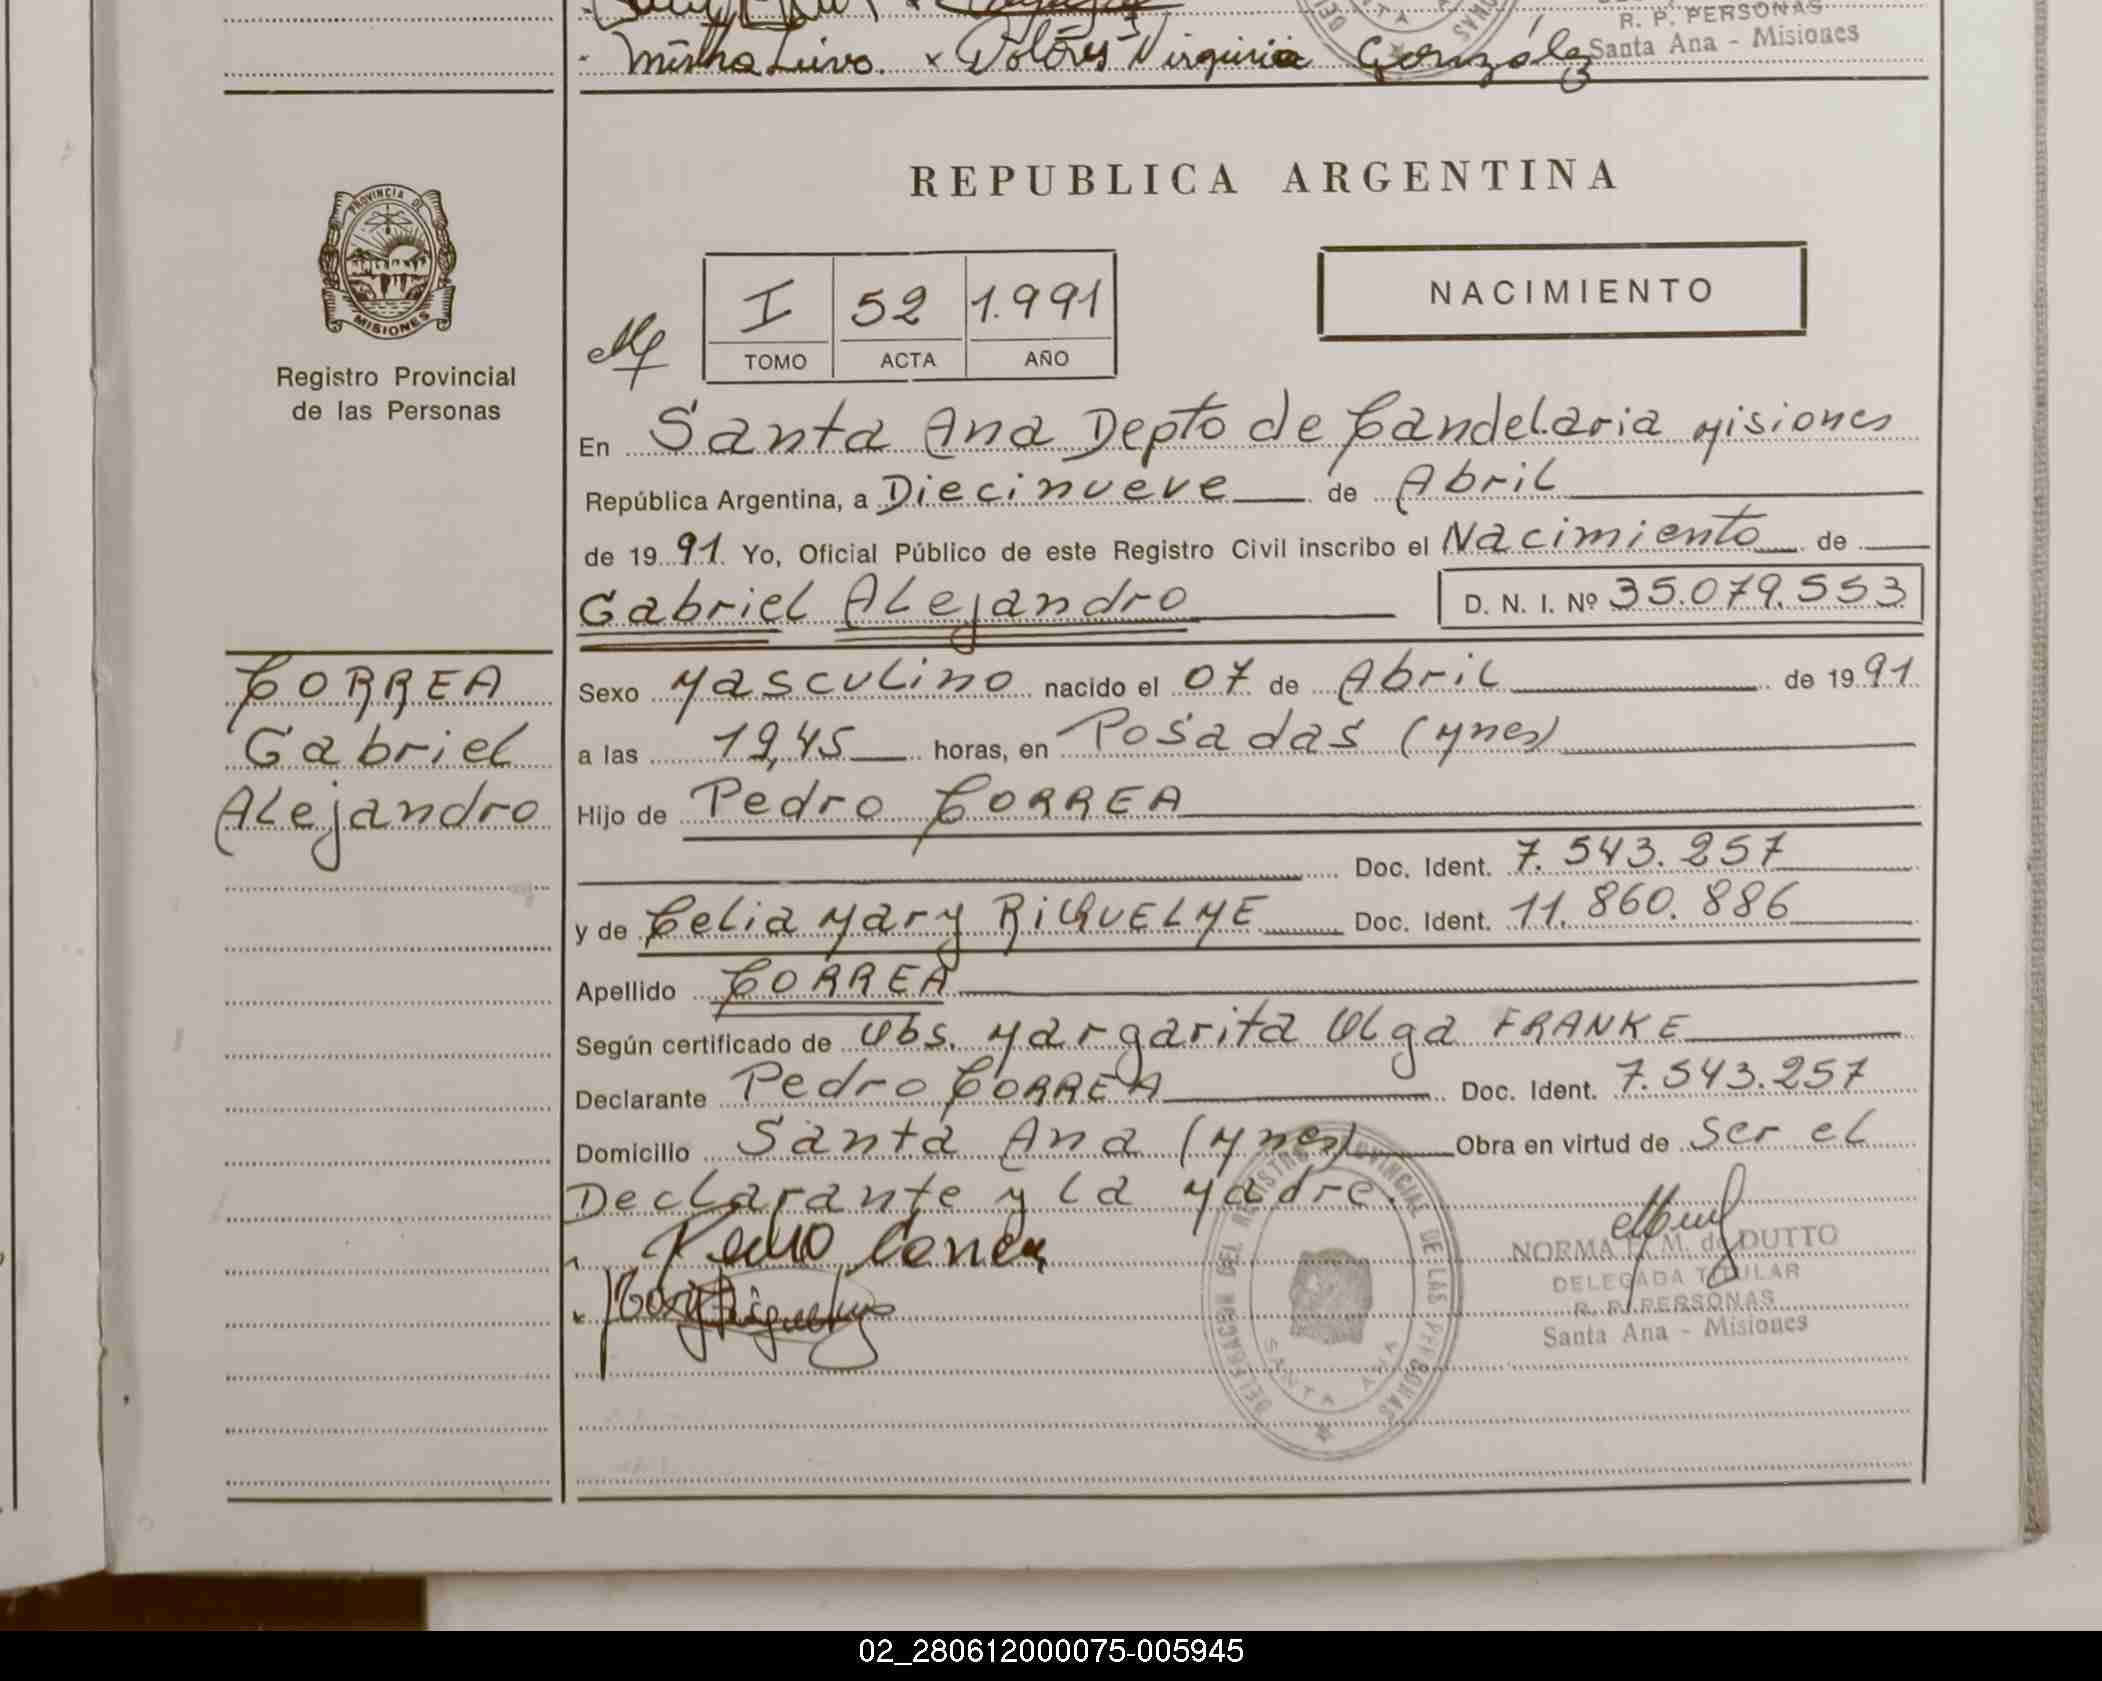 Mirtha Leiva. x Dolores Virginia González
R. P. PERSONAS
Santa Ana - Misiones
PROVINCIA DE
MISIONES
Registro Provincial
de las Personas
REPUBLICA ARGENTINA
I 52 1.991
TOMO ACTA AÑO
NACIMIENTO
En Santa Ana Depto de Candelaria Misiones
República Argentina, a Diecinueve de Abril
de 1991. Yo, Oficial Público de este Registro Civil inscribo el Nacimiento de
Gabriel Alejandro D. N. I. Nº 35.079.553
CORREA
Gabriel
Alejandro
Sexo Masculino nacido el 07 de Abril de 1991
a las 19,45 horas, en Posadas (Mnes)
Hijo de Pedro CORREA
Doc. Ident. 7.543.257
y de Celia Mary RIQUELME Doc. Ident. 11.860.886
Apellido CORREA
Según certificado de Obs. Margarita Olga FRANKE
Declarante Pedro CORREA Doc. Ident. 7.543.257
Domicilio Santa Ana (Mnes) Obra en virtud de Ser el
Declarante y la Madre.
Pedro Correa
x Mary Riquelme
DELEGACION DEL REGISTRO PROVINCIAL DE LAS PERSONAS
SANTA ANA
NORMA M. de DUTTO
DELEGADA TITULAR
R. P. PERSONAS
Santa Ana - Misiones
02_280612000075-005945